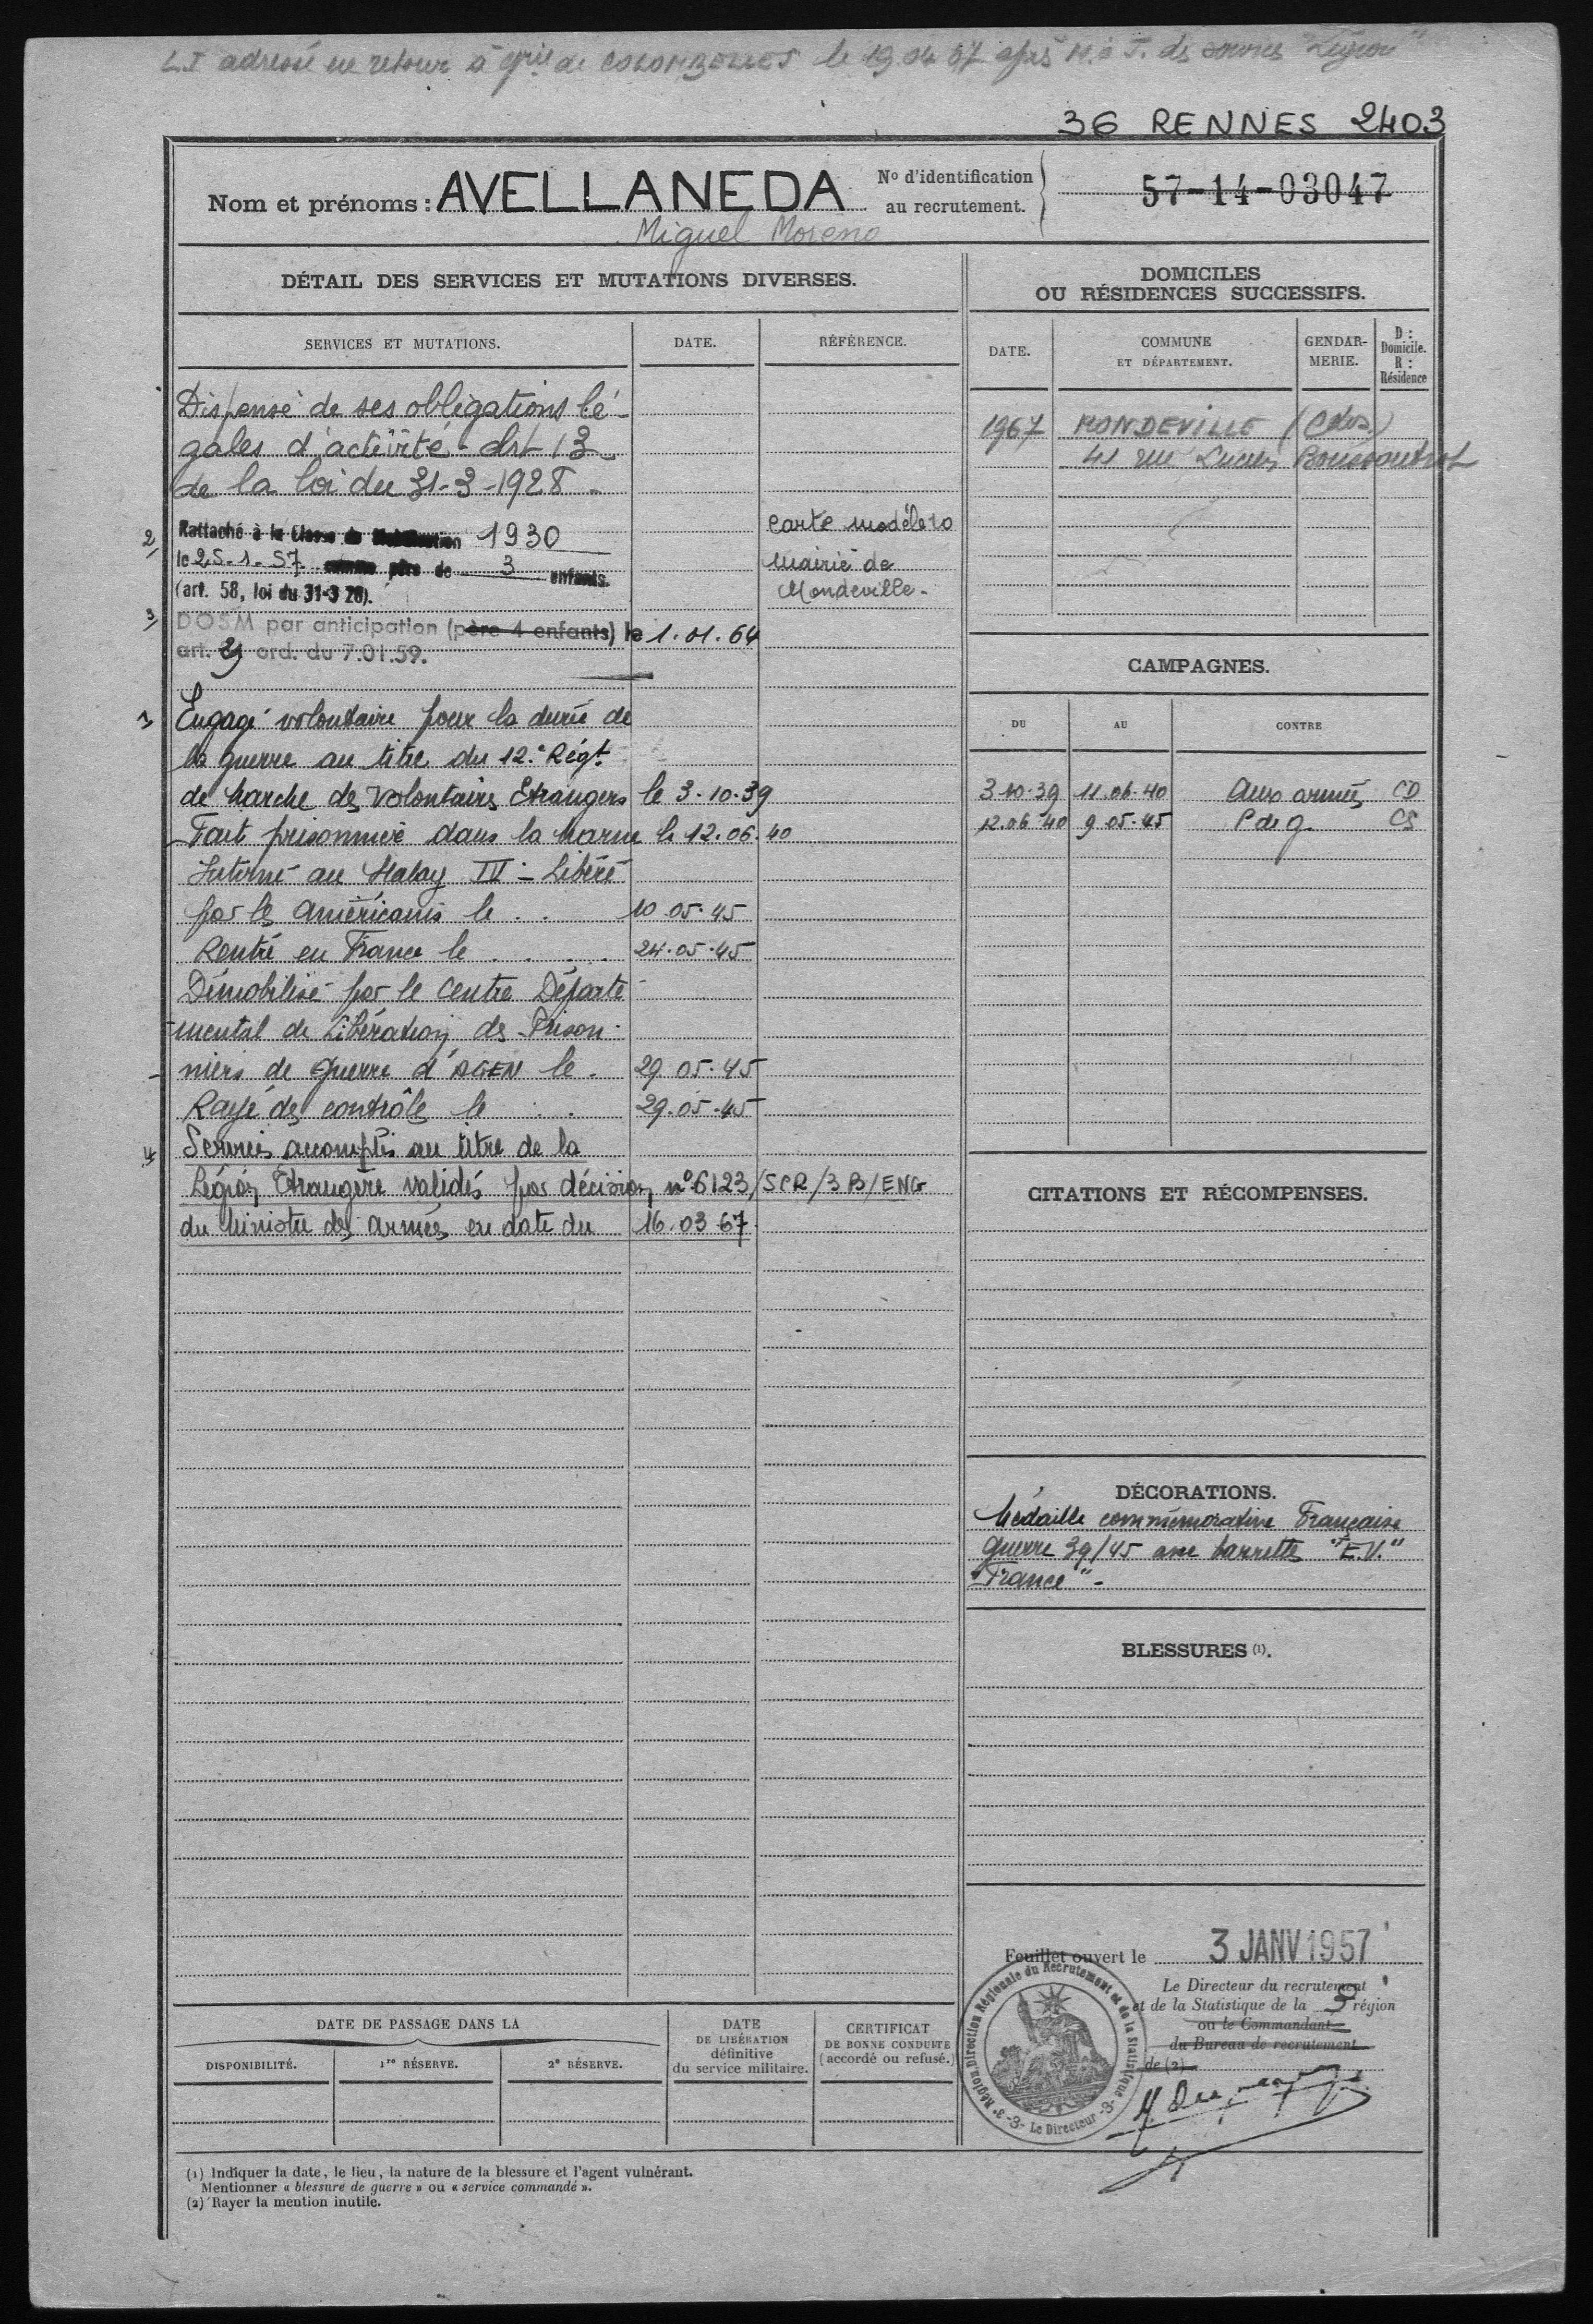 L.I adressé en retour à gie de COLOMBELLES le 19.04.67 après M. à J. des services "Légion"
36 RENNES 2403
Nom et prénoms : AVELLANEDA
Miguel Moreno
No d'identification
au recrutement.
57-14-03047
DÉTAIL DES SERVICES ET MUTATIONS DIVERSES.
SERVICES ET MUTATIONS. DATE. RÉFÉRENCE.
Dispensé de ses obligations lé-
gales d'activité - Art 13
de la loi du 31-3-1928 -
2/ Rattaché à la Classe de 1930
le 25-1-57 père de 3 enfants.
(art. 58, loi du 31-3 28).
carte modèle 10
mairie de
Mondeville -
3/ DOSM par anticipation (père 4 enfants) le 1.01.64
art. ord. du 7.01.59.
1 Engagé volontaire pour la durée de
la guerre au titre du 12.e Régt
de Marche des Volontaires Etrangers le 3-10-39
Fait prisonnier dans la Marne le 12.06.40
Interné au Stalag IV - Libéré
par les Américains le . . 10.05.45
Rentré en France le . . . . 24.05.45
Démobilisé par le Centre Départe
-mental de Libération des Prison-
niers de Guerre d'AGEN le . 29.05.45
Rayé des contrôles le . . 29.05.45
4 Services accomplis au titre de la
Légion Etrangère validés par décision n°6123/SCR/3B/ENG
du Ministre des Armées en date du 16.03.67.
DOMICILES
OU RÉSIDENCES SUCCESSIFS.
DATE. COMMUNE
ET DÉPARTEMENT.
GENDAR-
MERIE.
D :
Domicile.
R :
Résidence
1967 MONDEVILLE (Cdos.)
41 rue Lucien
CAMPAGNES.
DU AU CONTRE
3.10.39 11.06.40 Aux armées CD
12.06.40 9.05.45 P de g. CS
CITATIONS ET RÉCOMPENSES.
DÉCORATIONS.
Médaille commémorative Française
Guerre 39/45 avec barrettes "E.V."
"France" -
BLESSURES (1).
Feuillet ouvert le 3 JANV 1957
Le Directeur du recrutement
et de la Statistique de la 3e région
ou le Commandant
du Bureau de recrutement
de (2)
3e Région. Direction Régionale du Recrutement et de la Statistique -3- Le Directeur -3-
DATE DE PASSAGE DANS LA
DISPONIBILITÉ. 1re RÉSERVE. 2e RÉSERVE.
DATE
DE LIBÉRATION
définitive
du service militaire.
CERTIFICAT
DE BONNE CONDUITE
(accordé ou refusé.)
(1) Indiquer la date, le lieu, la nature de la blessure et l'agent vulnérant.
Mentionner « blessure de guerre » ou « service commandé ».
(2) Rayer la mention inutile.